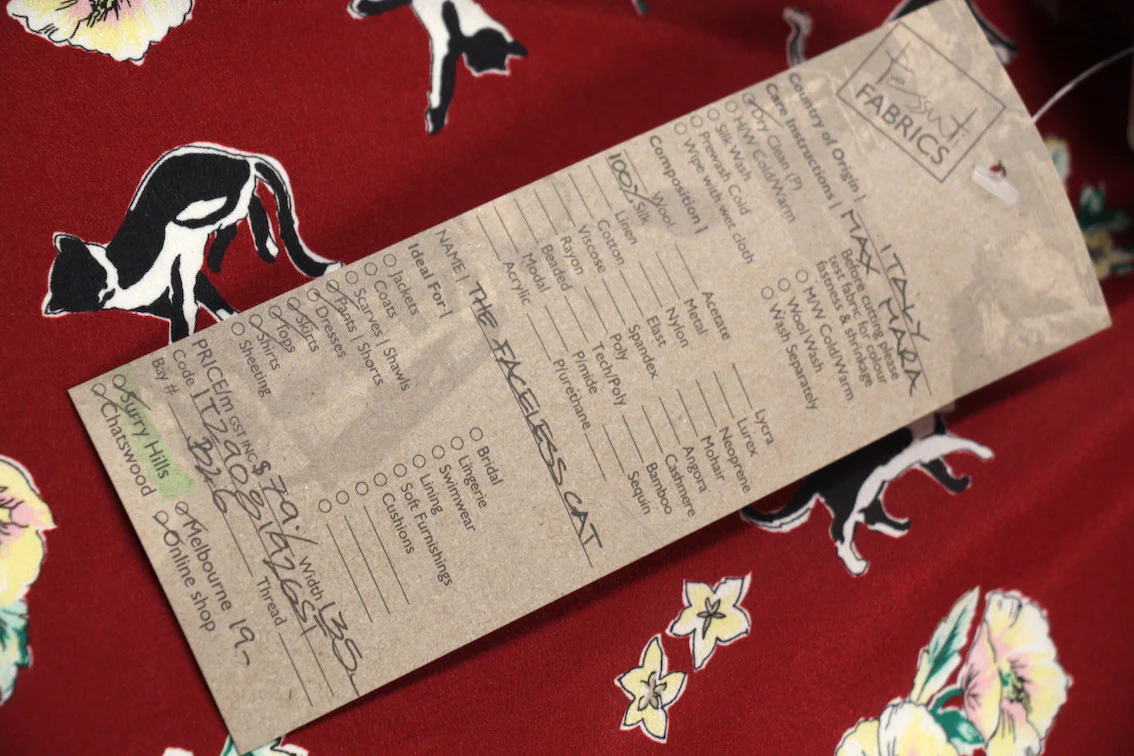 Tessuti
FABRICS
Country of Origin | ITALY
MAX MARA
Care Instructions | Before cutting please
test fabric for colour
fastness & shrinkage
Dry Clean (P)
H/W Cold/Warm
Silk Wash
Prewash Cold
Wipe with wet cloth
MW Cold/Warm
Wool Wash
Wash Separately
Composition |
Wool
100% Silk
Linen
Cotton
Viscose
Rayon
Beaded
Modal
Acrylic
Acetate
Metal
Nylon
Elast
Spandex
Poly
Tech/Poly
P/mide
P/urethane
Lycra
Lurex
Neoprene
Mohair
Angora
Cashmere
Bamboo
Sequin
NAME | THE FACELESS CAT
Ideal For |
Jackets
Coats
Scarves | Shawls
Pants | Shorts
Dresses
Skirts
Tops
Shirts
Sheeting
Bridal
Lingerie
Swimwear
Lining
Soft Furnishings
Cushions
PRICE/m GST INC $ 79.- Width 135
Code
Bay # B26 Thread
Surry Hills
Chatswood
Melbourne 19-
Online shop